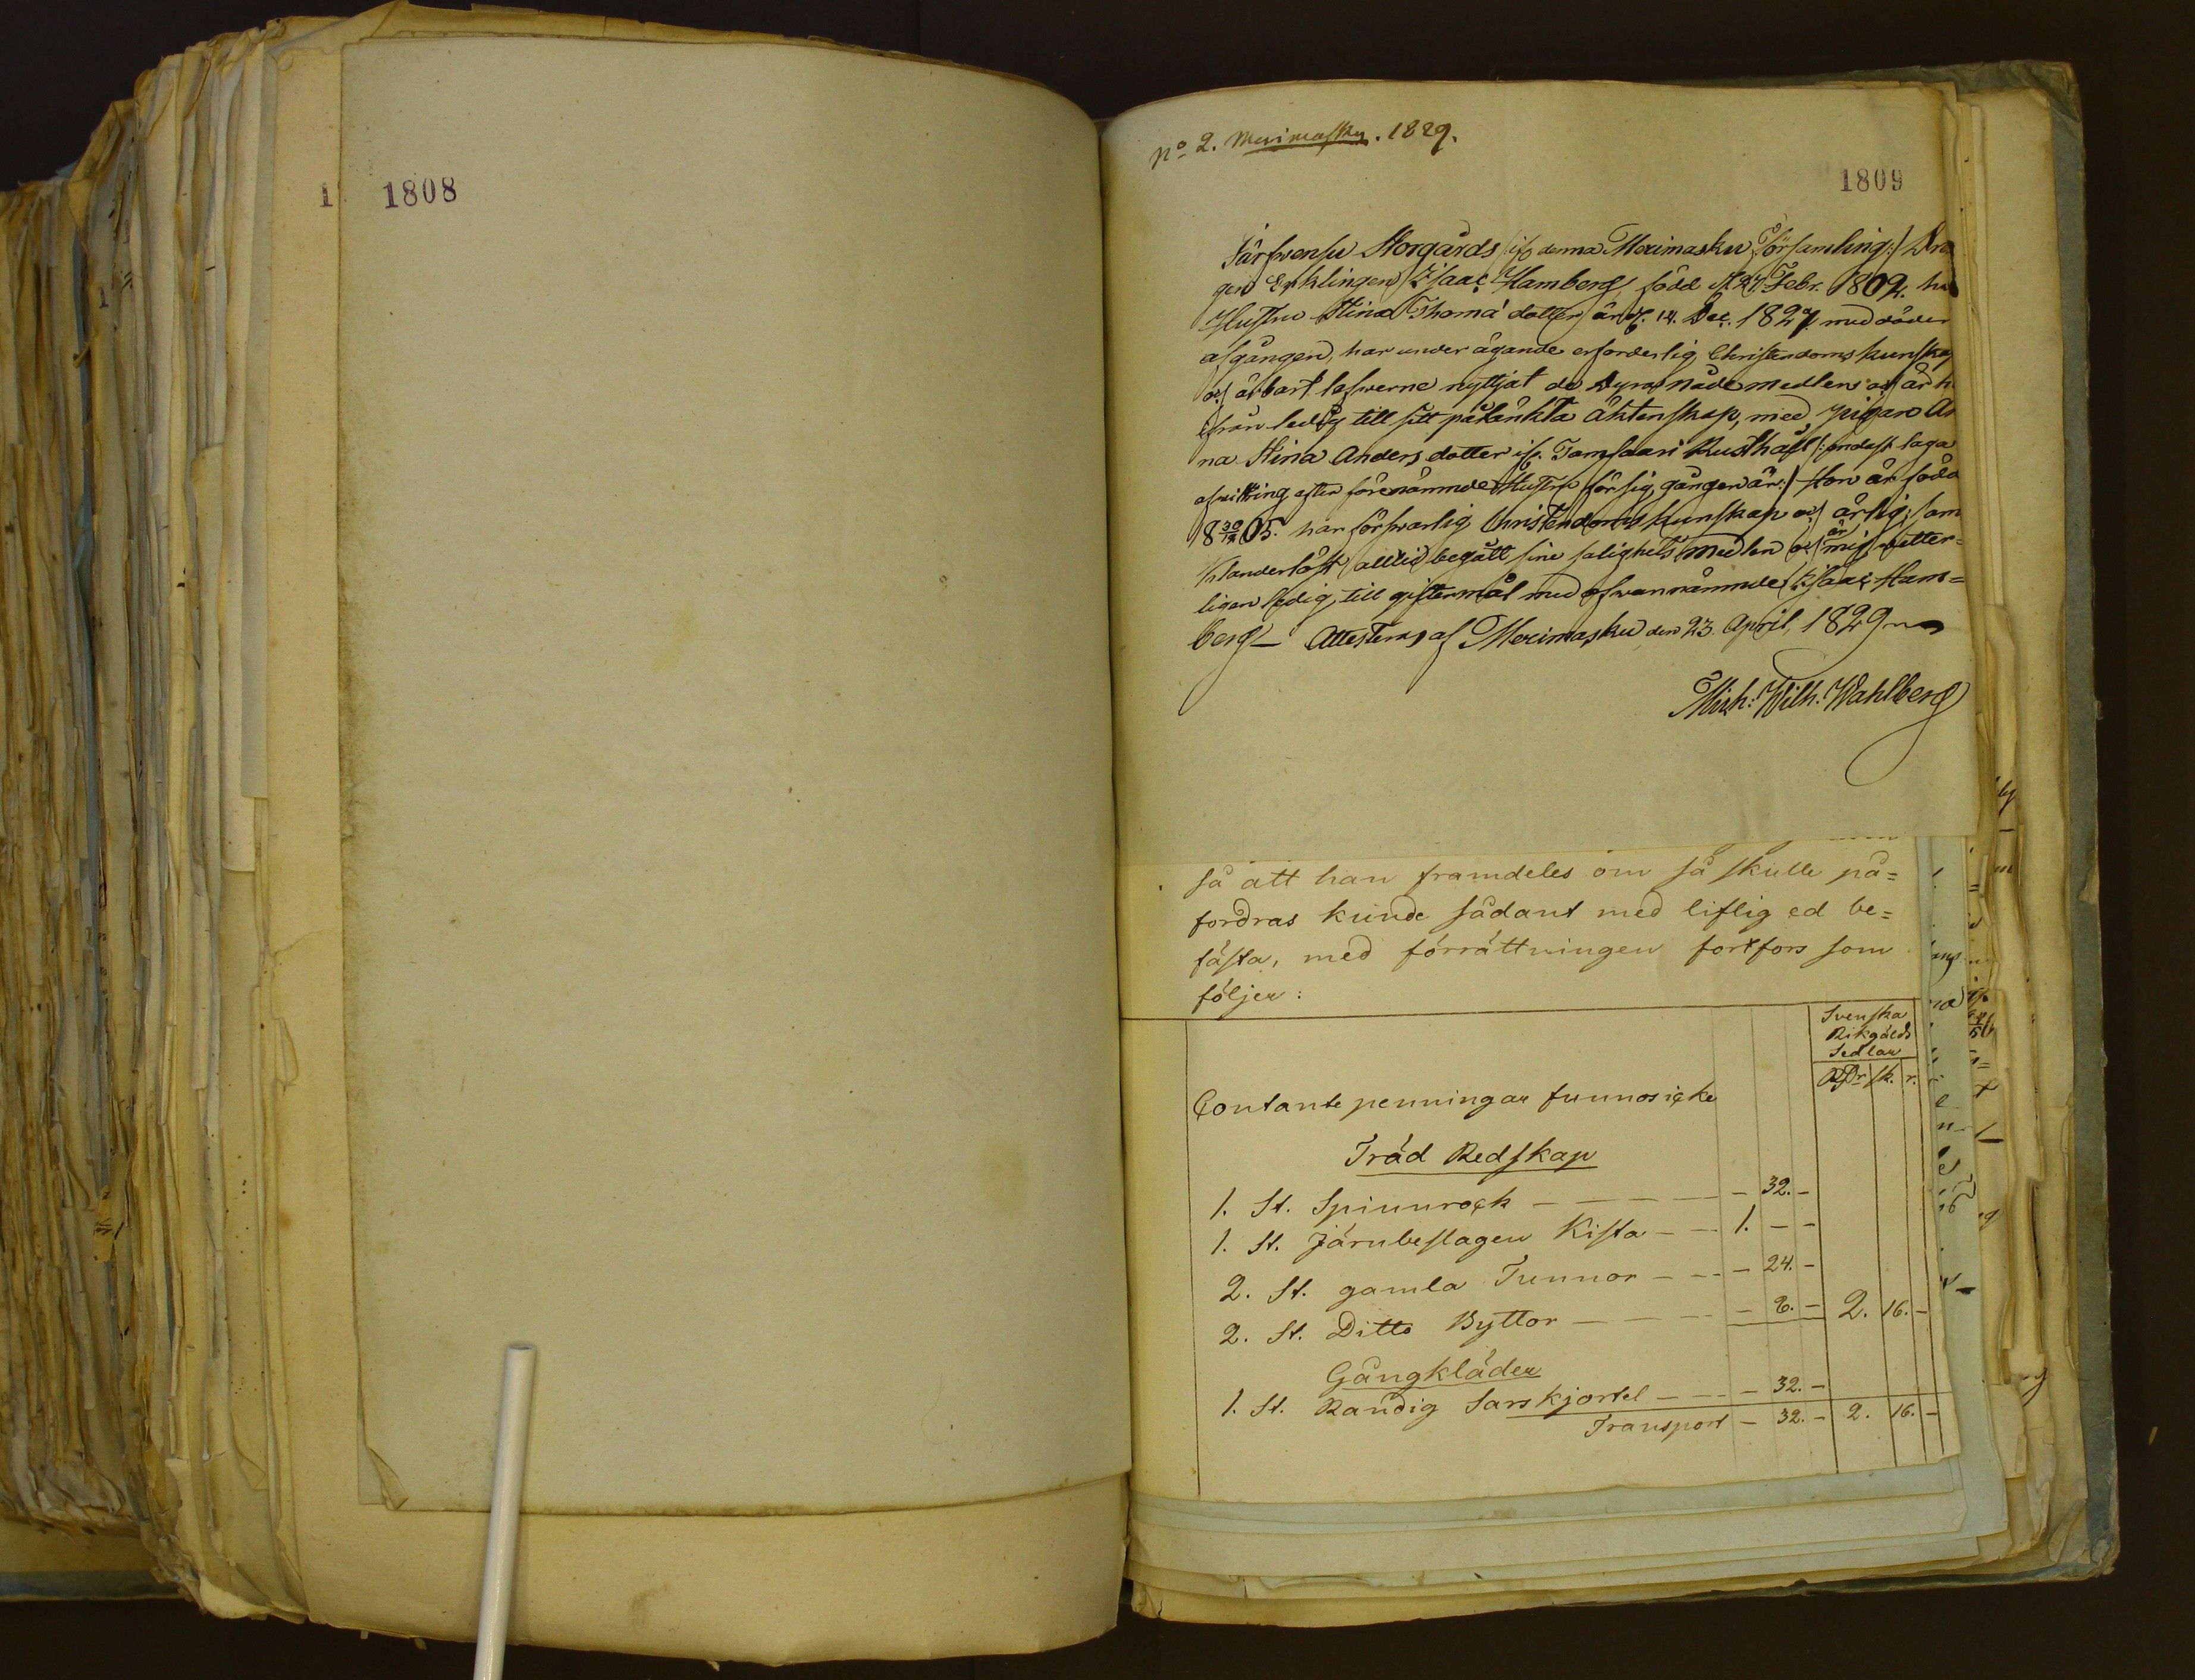 1808
No 2. Merimasku. 1829.
1809
Särfwensu Storgårds ifr denna Merimasku Församling:/ Dren
gen Enklingen Isaac Hamberg, född d. 27. Febr. 1802. 
Hustru Stina Thomæ dotter är d. 14. Dec. 1827 med döden
afgången, har under ägande erforderlig Christendoms kunskap
och ärbart lefwerne nyttjat de dyra nåde medlen och är h
ifrån ledig till sitt påtänkta äktenskap, med pigan An
na Stina Anders dotter ifr. Tamsaari Rusthåll /: endast laga
afwittring efter förenämnde Hustru för sig gången är:/ Hon är född
18 30/12 05. har förswarlig Christendoms kunskap och ärlig, sam
Klanderlöst alltid begått sine salighets medlen och är mig wetter=
ligen ledig till giftermål med ofwannämnde Isaac Ham=
berg – Attesteras af Merimasku den 23. April, 1829
Mich: Wilh: Wahlberg
så att han framdeles om så skulle på=
fordras kunde sådant med liflig ed be=
fästa, med förrättningen fortfors som
följer:
Svenska
Riksgälds
Sedlar
RDr sk. r.
Contante penningar funnos icke
Träd Redskap
1. St. Spinnrock – – – – – 32. –
1. St. Järnbeslagen Kista – – 1. – –
2. St. gamla Tunnor – – – 24. –
2. St. Ditto Byttor – – – – 8. – 2. 16. –
Gångkläder
1. St. Randig Sarskjortel – – – 32. –
Transport – 32. – 2. 16. –